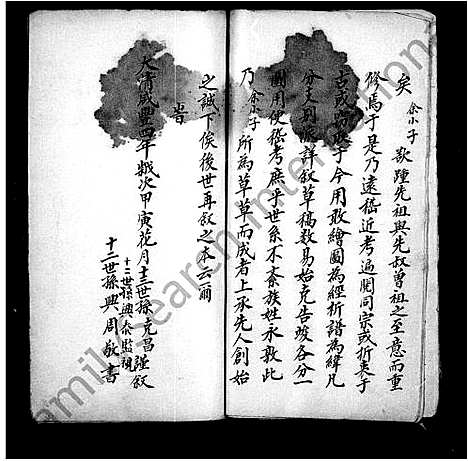 矣余小子敢踵先祖與先叔曾祖之至意而重
修焉于是乃遠稽近考遍閱同宗或折衷于
古或于今用敢繪圖為經析譜為緯凡
分支別派詳叙草稿数易始克告竣各分一
圖用便稽考庶乎世系不紊族姓永敦此
乃余小子所為草草而成者上承先人創始
之誠下俟後世再叙之本云爾
旹
大清咸豐四年歲次甲寅花月十三世孫克昌謹叙
十二世孫興泰監視
十二世孫興周敬書
Family Search International